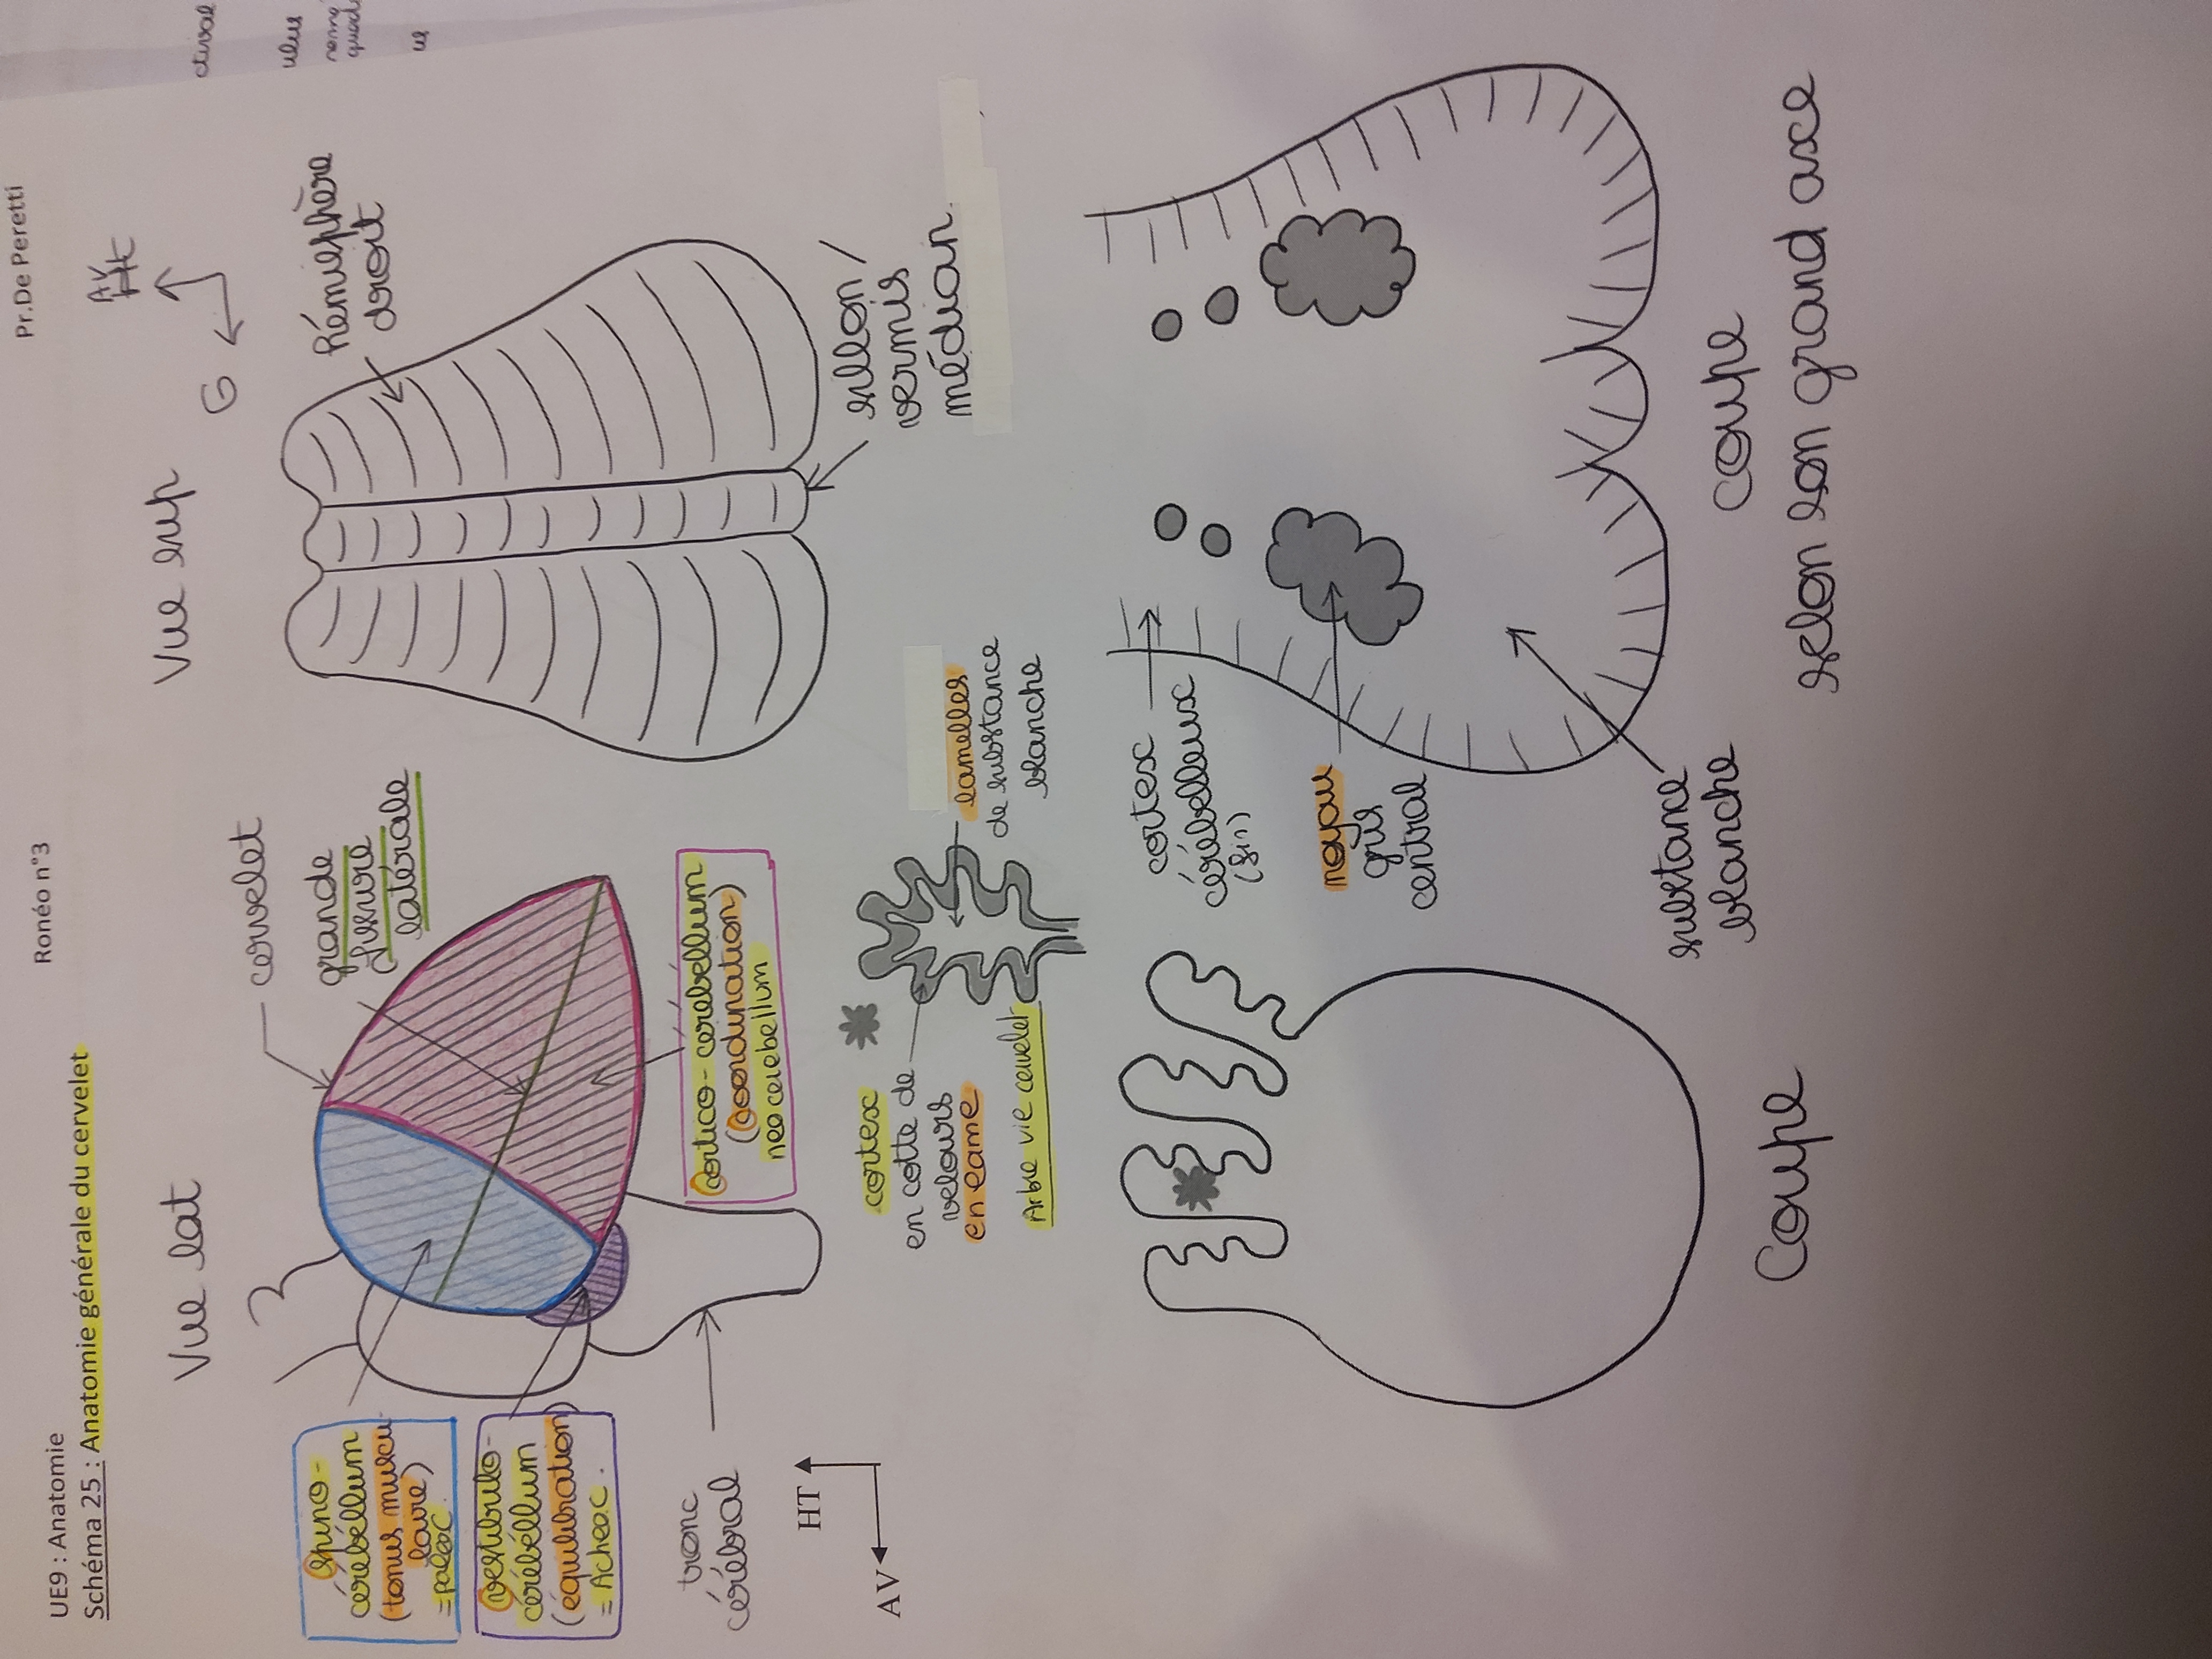 UE9 : Anatomie
Ronéo n°3
Pr.De Peretti
Schéma 25 : Anatomie générale du cervelet
Vue lat
cervelet
grande
fissure
latérale
spino-
cérébéllum
(tonus muscu
laire)
= paléoC
vestibulo-
cérébéllum
(équilibration)
= ArchéoC.
tronc
cérébral
HT
AV
cortico-cérébellum
(coordination)
neo cerebellum
Vue sup
AV
G
Rémisphère
droit
sillon/
vermis
médian
cortex
en cotte de
velours
en lame
Arbre vie cervelet
lamelles
de substance
blanche
Coupe
cortex
cérébelleux
noyau
gris
central
substance
blanche
coupe
selon son grand axe